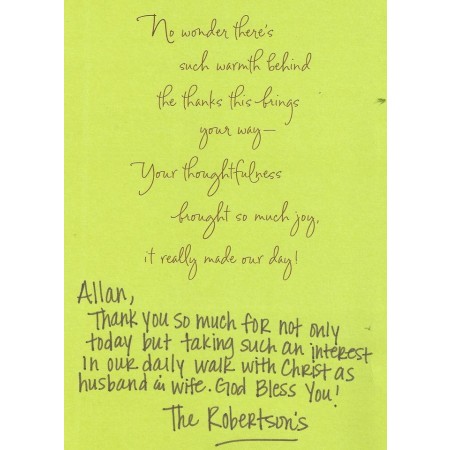 No wonder there's
such warmth behind
the thanks this brings
your way—
Your thoughtfulness
brought so much joy,
it really made our day!
Allan,
Thank you so much for not only
today but taking such an interest
in our daily walk with Christ as
husband in wife. God Bless You!
The Robertson's